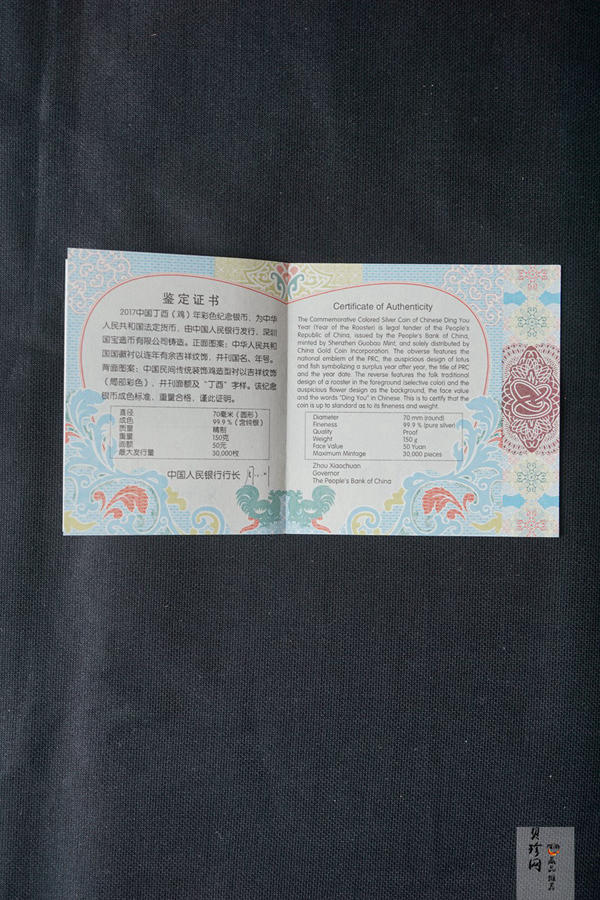 鉴定证书
2017中国丁酉（鸡）年彩色纪念银币，为中华
人民共和国法定货币，由中国人民银行发行，深圳
国宝造币有限公司铸造。正面图案：中华人民共和
国国徽衬以连年有余吉祥纹饰，并刊国名、年号。
背面图案：中国民间传统装饰鸡造型衬以吉祥纹饰
（局部彩色），并刊面额及“丁酉”字样。该纪念
银币成色标准，重量合格，谨此证明。
直径 70毫米（圆形）
成色 99.9％（含纯银）
质量 精制
重量 150克
面额 50元
最大发行量 30,000枚
中国人民银行行长
Certificate of Authenticity
The Commemorative Colored Silver Coin of Chinese Ding You
Year (Year of the Rooster) is legal tender of the People's
Republic of China, issued by the People's Bank of China,
minted by Shenzhen Guobao Mint, and solely distributed by
China Gold Coin Incorporation. The obverse features the
national emblem of the PRC, the auspicious design of lotus
and fish symbolizing a surplus year after year, the title of PRC
and the year date. The reverse features the folk traditional
design of a rooster in the foreground (selective color) and the
auspicious flower design as the background, the face value
and the words "Ding You" in Chinese. This is to certify that the
coin is up to standard as to its fineness and weight.
Diameter 70 mm (round)
Fineness 99.9 % (pure silver)
Quality Proof
Weight 150 g
Face Value 50 Yuan
Maximum Mintage 30,000 pieces
Zhou Xiaochuan
Governor
The People's Bank of China
贝珍网